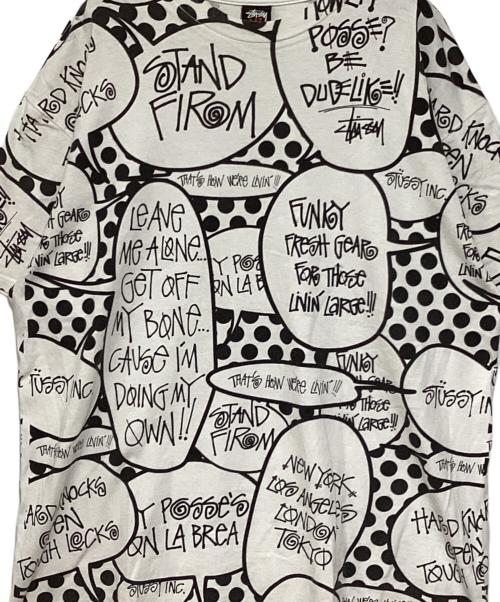 Stüssy
HOW 'BOUT
POSSE?
BE
DUBELIKE!!
STÜSSY
STAND
FIROM
HARD KNOCKS
LOCKS
THAT'S HOW WE'RE LIVIN'!!!
STÜSSY INC.
HARD KNO
OPEN
LEAVE
ME ALONE...
GET OFF
MY BONE...
CAUSE I'M
DOING MY
OWN!!
FUNKY
FRESH GEAR
FOR THOSE
LIVIN' LARGE!!!
GEAR
THOSE
LARGE!!!
Y POSSE
ON LA B
THAT'S HOW WE'RE LIVIN'!!!
FUNKY
GEAR
THOSE
LARGE!!!
STÜSSY INC.
STÜSSY IN
STAND
FIROM
THAT'S HOW WE'RE LIVIN'!!!
THAT'S HOW W
NEW YORK
LOS ANGELES
LONDON
TOKYO
HARD KNOCKS
OPEN
TOUGH LOCKS
Y POSSE'S
ON LA BREA
HARD KNO
OPEN
TOUGH LO
STÜSSY INC.
THAT'S HOW WE'RE LIVIN'